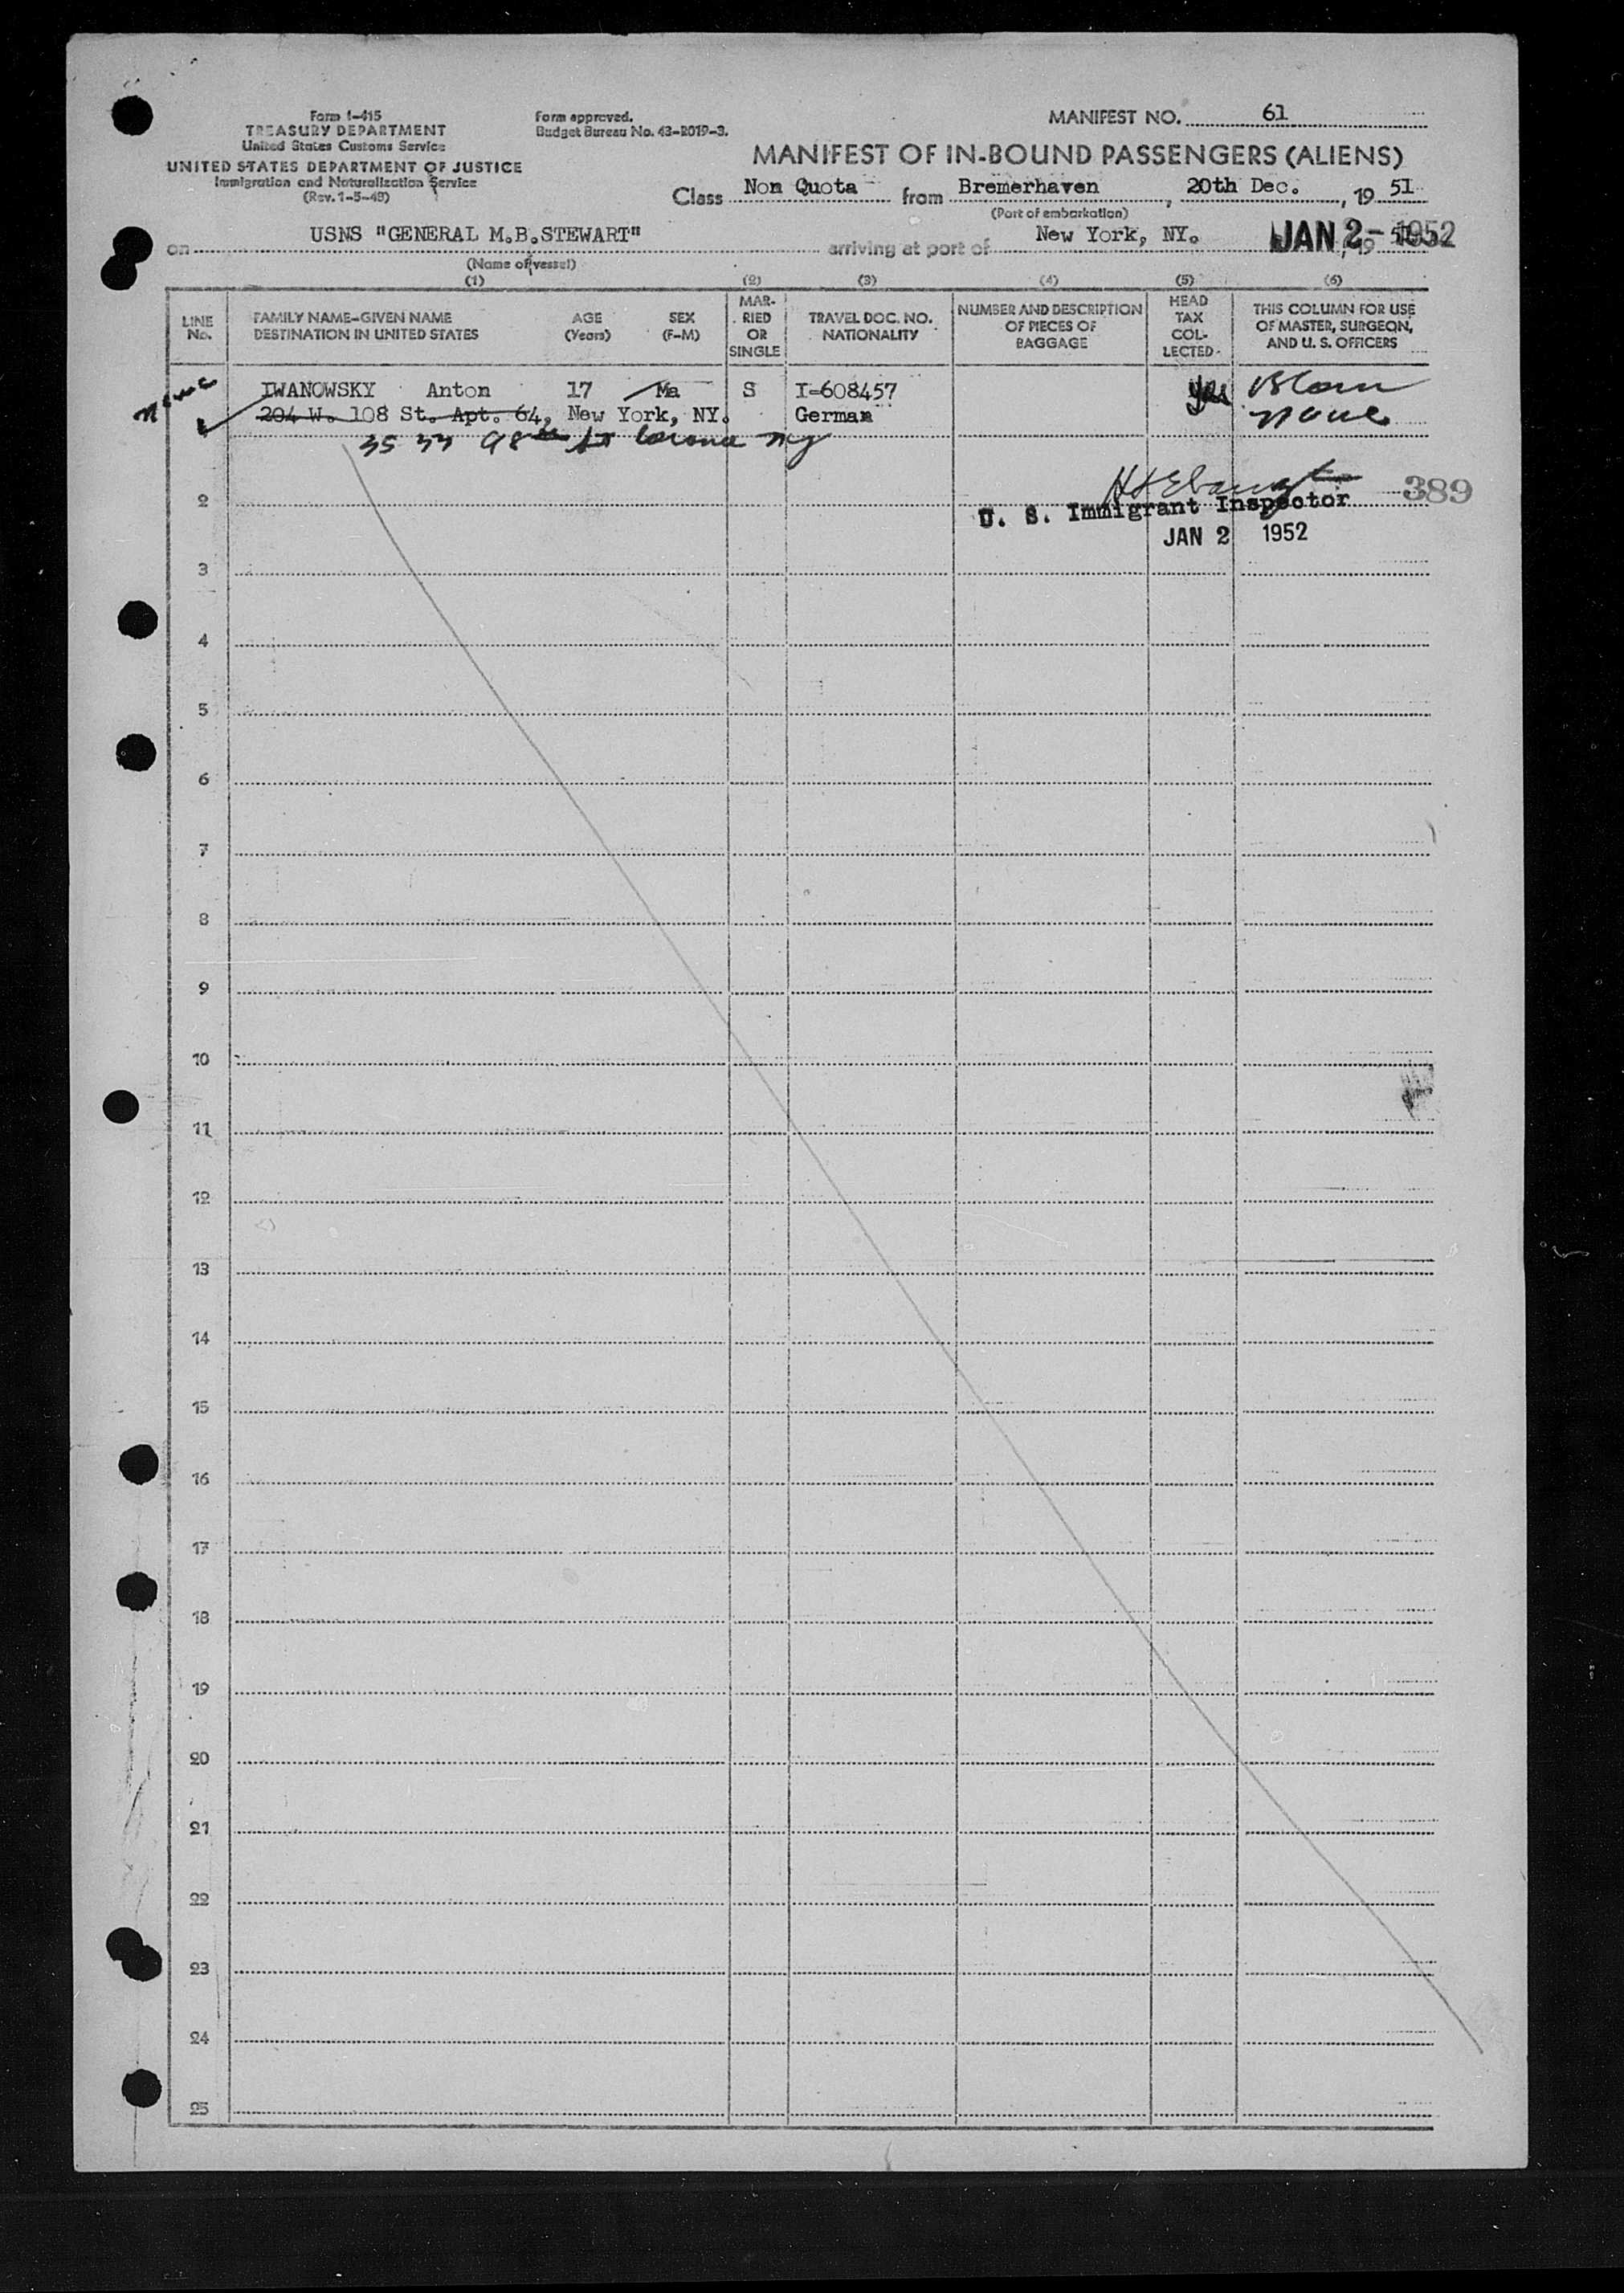 Form I-415
TREASURY DEPARTMENT
United States Customs Service
UNITED STATES DEPARTMENT OF JUSTICE
Immigration and Naturalization Service
(Rev. 1-5-49)
Form approved.
Budget Bureau No. 43-R019-3.
MANIFEST NO. 61
MANIFEST OF IN-BOUND PASSENGERS (ALIENS)
Class Non Quota from Bremerhaven, 20th Dec., 19 51
(Port of embarkation)
on USNS "GENERAL M.B.STEWART" arriving at port of New York, NY. JAN 2 - 1952, 19
(Name of vessel)
(1) (2) (3) (4) (5) (6)
LINE No.
FAMILY NAME-GIVEN NAME AGE SEX
DESTINATION IN UNITED STATES (Years) (F-M)
MAR-RIED OR SINGLE
TRAVEL DOC. NO. NATIONALITY
NUMBER AND DESCRIPTION OF PIECES OF BAGGAGE
HEAD TAX COL-LECTED
THIS COLUMN FOR USE OF MASTER, SURGEON, AND U. S. OFFICERS
IWANOWSKY Anton 17 Ma S I-608457 yes
204 W. 108 St. Apt. 64, New York, NY. German none
35 33 98th St Corona NY
389
2
U. S. Immigrant Inspector
JAN 2 1952
3
4
5
6
7
8
9
10
11
12
13
14
15
16
17
18
19
20
21
22
23
24
25